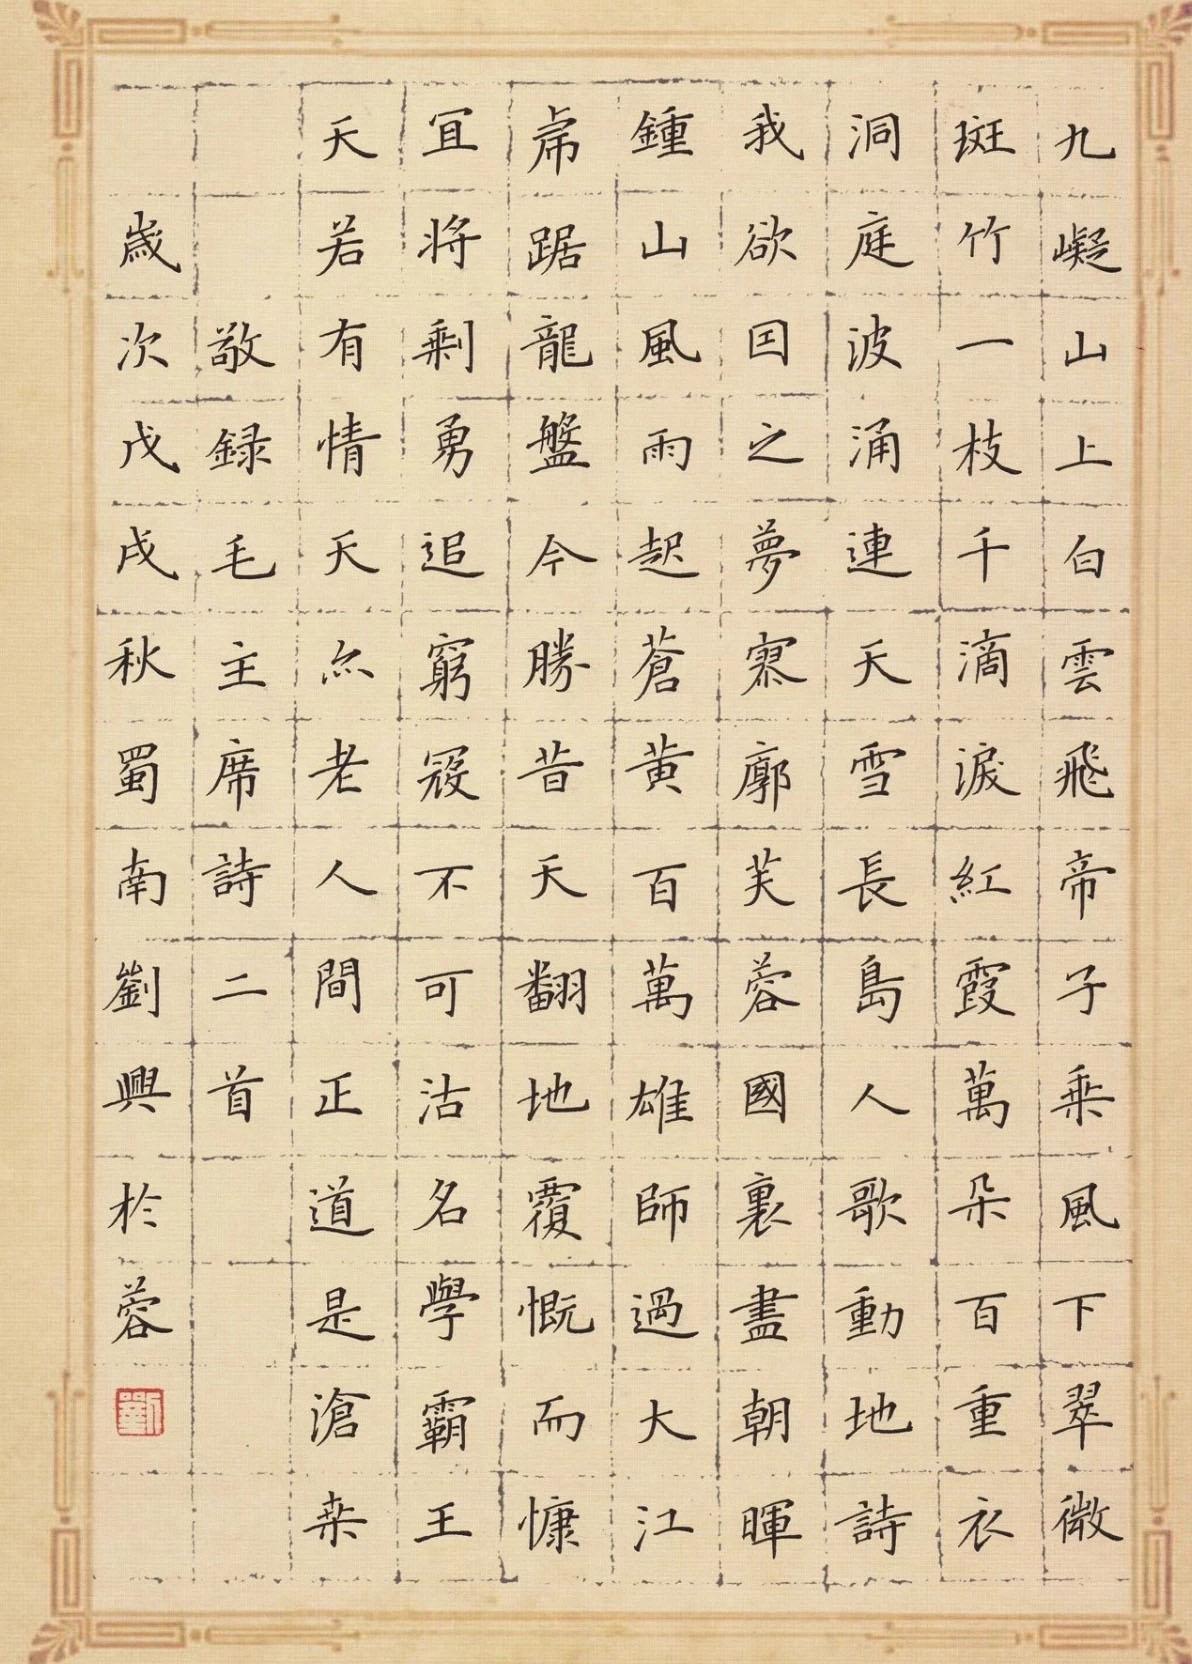 九嶷山上白雲飛帝子乘風下翠微
斑竹一枝千滴淚紅霞萬朵百重衣
洞庭波涌連天雪長島人歌動地詩
我欲因之夢寥廓芙蓉國裏盡朝暉
鍾山風雨起蒼黃百萬雄師過大江
虎踞龍盤今勝昔天翻地覆慨而慷
宜將剩勇追窮寇不可沽名學霸王
天若有情天亦老人間正道是滄桑
敬録毛主席詩二首
歲次戊戌秋蜀南劉興於蓉
劉